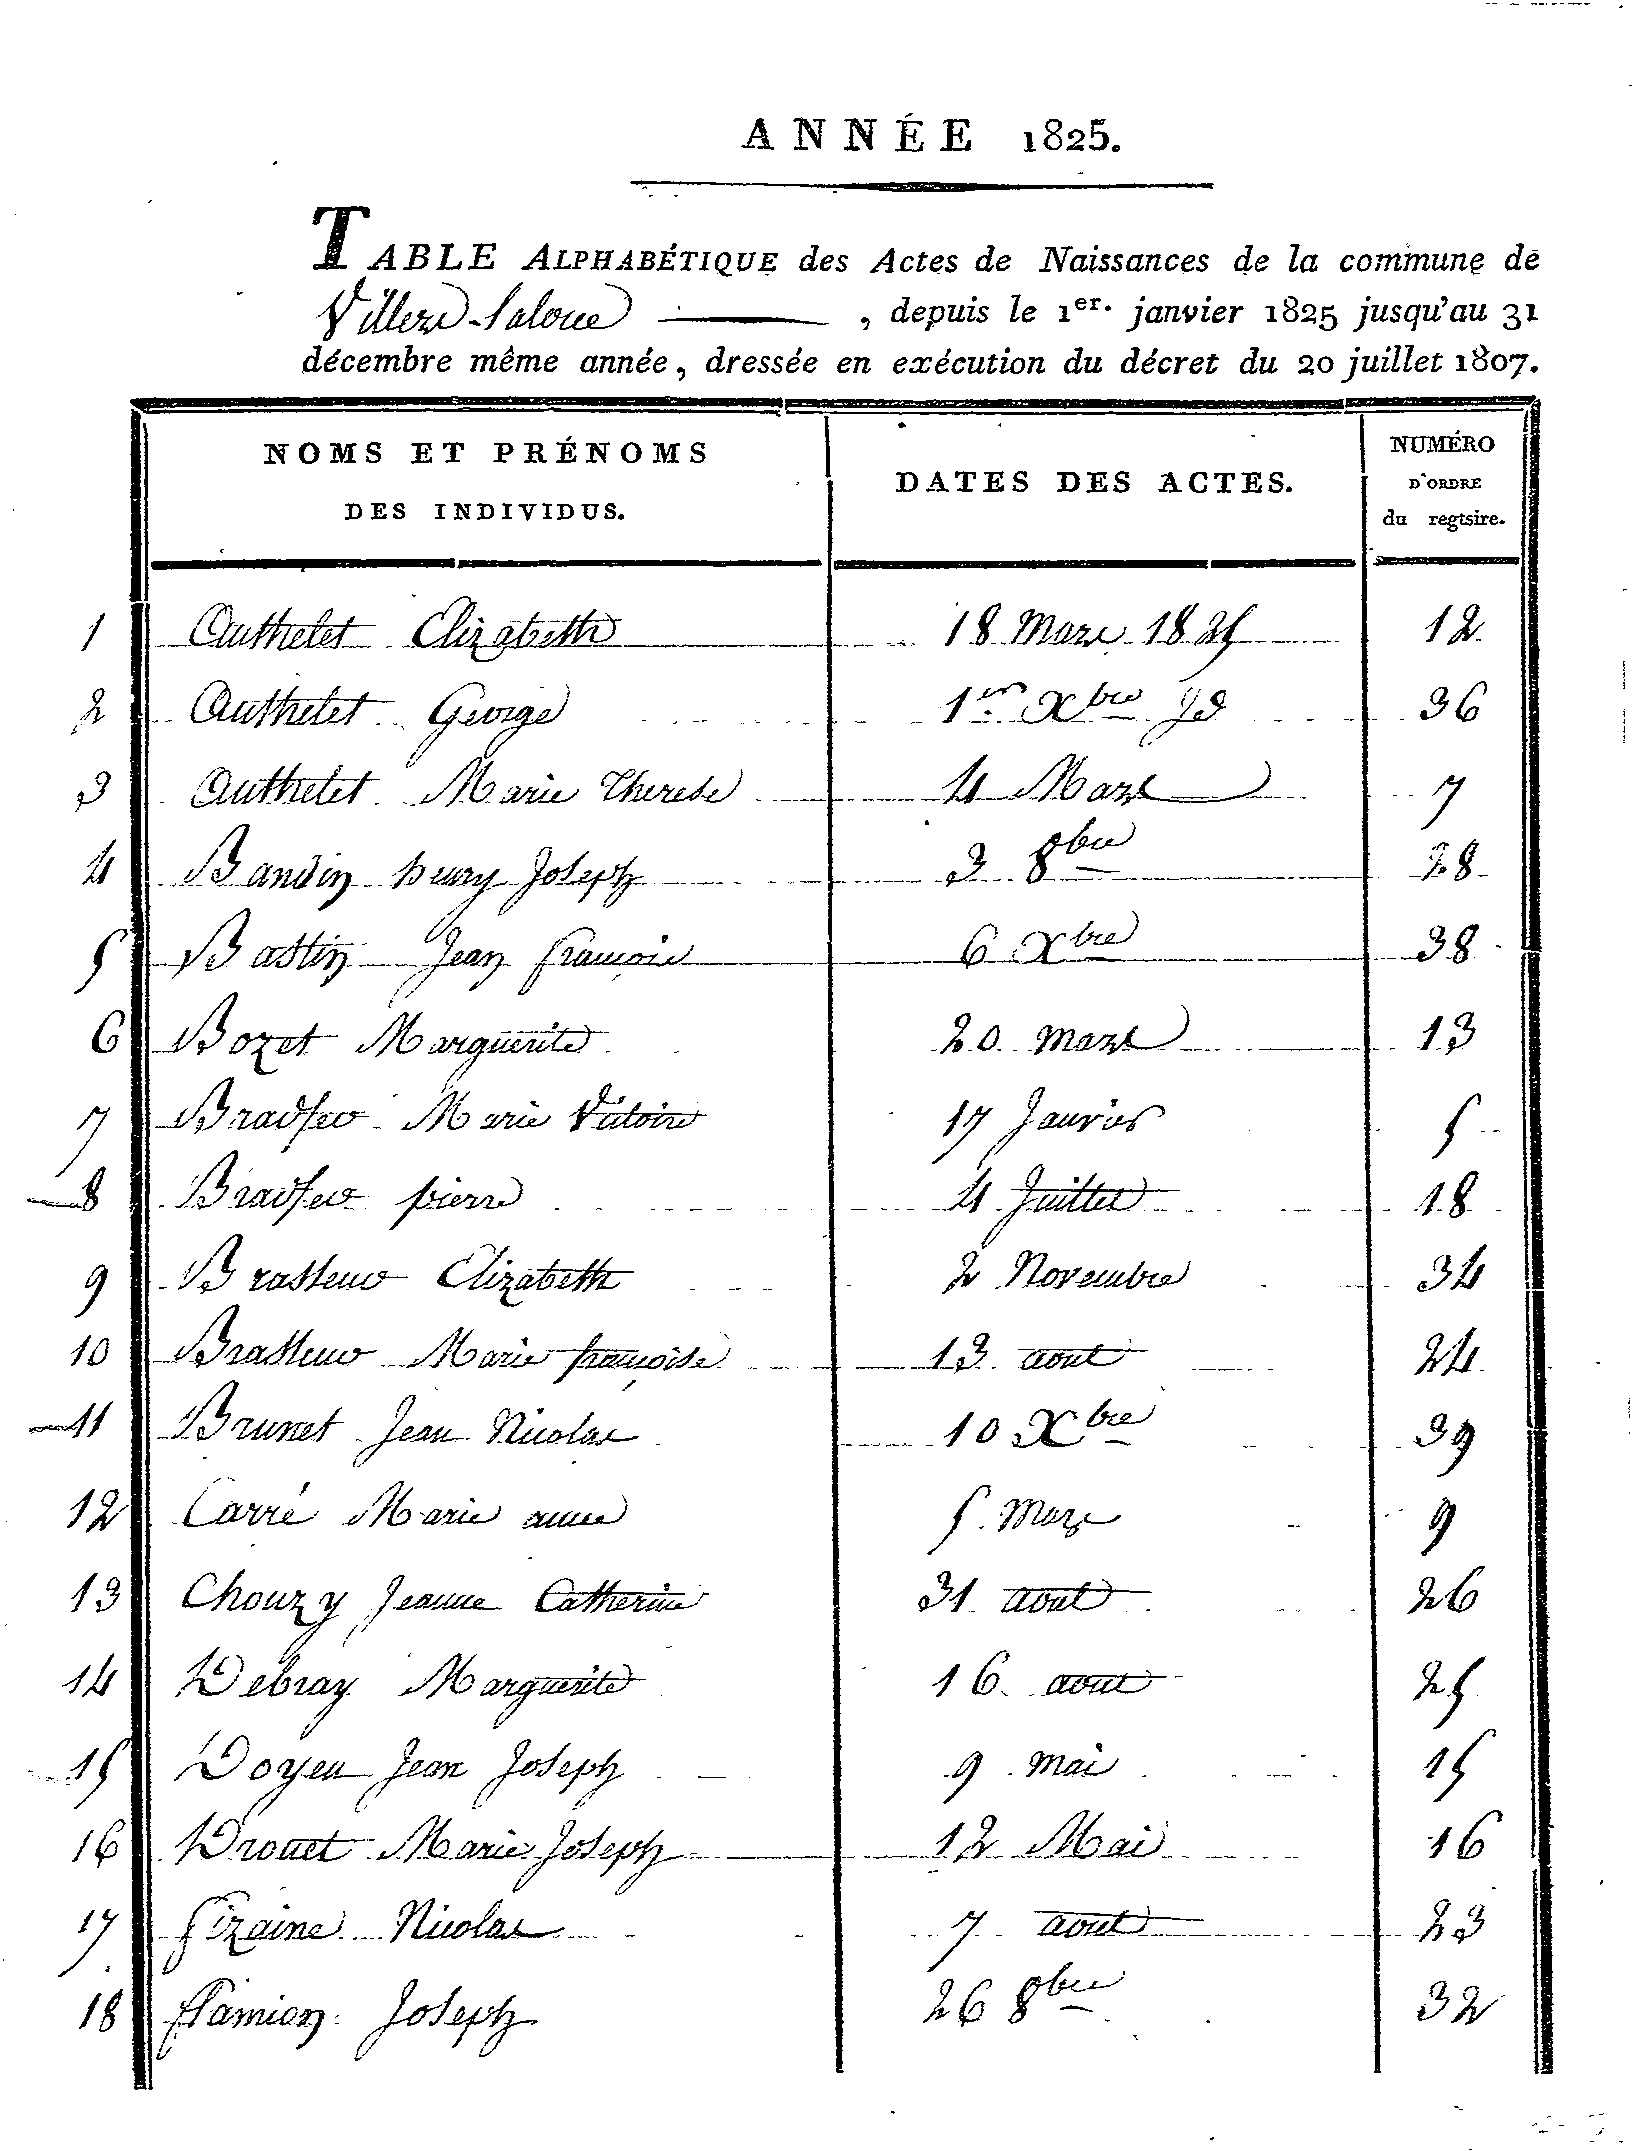 ANNÉE 1825.
TABLE ALPHABÉTIQUE des Actes de Naissances de la commune de
Villers-la loue, depuis le 1er. janvier 1825 jusqu'au 31
décembre même année, dressée en exécution du décret du 20 juillet 1807.
NOMS ET PRÉNOMS DES INDIVIDUS. DATES DES ACTES. NUMÉRO D'ORDRE du regtsire.
1 Authelet Elizabeth 18 Mars 1825 12
2 Authelet George 1er Xbre Id 36
3 Authelet Marie Therese 4 Mars 7
4 Baudin henry Joseph 3 8bre 28
5 Bastin Jean françois 6 Xbre 38
6 Bozet Marguerite 20 mars 13
7 Bradfer Marie Victoire 17 Janvier 5
8 Bradfer pierre 4 Juillet 18
9 Brasseur Elizabeth 2 Novembre 34
10 Brasseur Marie françoise 13 aout 24
11 Brunet Jean Nicolas 10 Xbre 39
12 Carré Marie anne 5 Mars 9
13 Chouzy Jeanne Catherine 31 aout 26
14 Debray Marguerite 16 aout 25
15 Doyen Jean Joseph 9 mai 15
16 Drouet Marie Joseph 12 Mai 16
17 fizaine Nicolas 7 aout 23
18 flamion Joseph 26 8bre 32